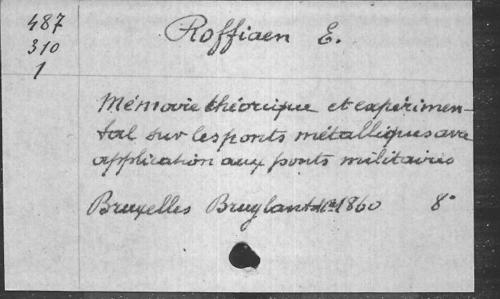 487
310
1
Roffiaen E.
Mémoire théorique et experimen-
tal sur les ponts métalliques avec
application aux ponts militaires
Bruxelles Bruylant 1860 8°